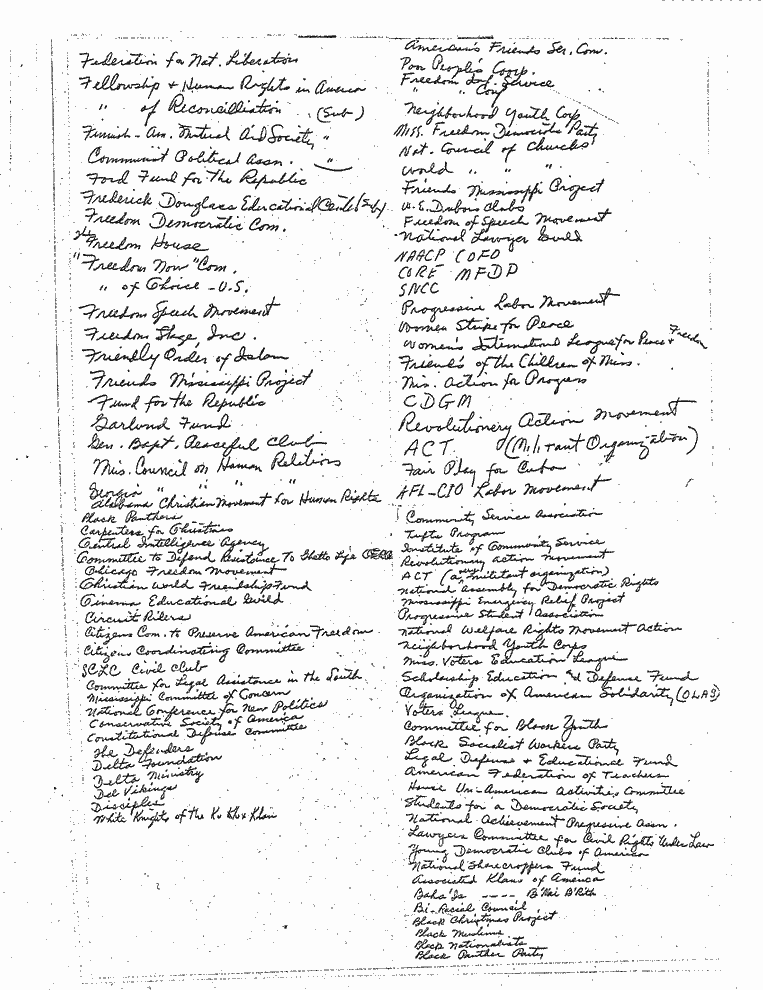 Federation for Nat. Liberation
Fellowship + Human Rights in America
" of Reconcilliation (Sub)
Finnish-Am. Mutual Aid Society "
Communist Political Assn. "
Ford Fund for the Republic
Frederick Douglass Educational Center (Sub)
Freedom Democratic Com.
Freedom House
"Freedom Now" Com.
" of Choice - U.S.
Freedom Speech Movement
Freedom Stage, Inc.
Friendly Order of Islam
Friends Mississippi Project
Fund for the Republic
Garland Fund
Gen. Bapt. Peaceful Club
Mis. Council on Human Relations
Georgia " " " "
Alabama Christian Movement for Human Rights
Black Panthers
Carpenters for Christmas
Central Intelligence Agency
Committee to Defend Resistance To Ghetto Life
Chicago Freedom Movement
Christian World Friendship Fund
Cinema Educational Guild
Circuit Riders
Citizens Com. to Preserve American Freedom
Citizens Coordinating Committee
SCLC Civil Club
Committee for Legal Assistance in the South
Mississippi Committee of Concern
National Conference for New Politics
Conservative Society of America
Constitutional Defense Committee
The Defenders
Delta Foundation
Delta Ministry
Del Vikings
Disciples
White Knights of the Ku Klux Klan
American's Friends Ser. Com.
Poor People's Corp.
Freedom Inf. Service
" " Corp
Neighborhood Youth Corp
Miss. Freedom Democratic Party
Nat. Council of Churches
World " " "
Friends Mississippi Project
W.E. Dubois Clubs
Freedom of Speech Movement
National Lawyer Guild
NAACP COFO
CORE MFDP
SNCC
Progressive Labor Movement
Women Strike for Peace
Women's International League for Peace + Freedom
Friend's of the Children of Miss.
Mis. Action for Progress
CDGM
Revolutionery Action Movement
ACT (Militant Organization)
Fair Play for Cuba
AFL-CIO Labor Movement
Community Service Association
Tufts Program
Institute of Community Service
Revolutionary Action Movement
ACT (a militant organization)
National Assembly for Democratic Rights
Mississippi Emergency Relief Project
Progressive Student Association
National Welfare Rights Movement Action
Neighborhood Youth Corps
Miss. Voters Education League
Scholarship Education & Defense Fund
Organization of American Solidarity (OLAS)
Voters League
Committee for Bloom Youth
Black Socialist Workers Party
Legal Defense + Educational Fund
American Federation of Teachers
House Un-American Activities Committee
Students for a Democratic Society
National Achievement Progressive Assn.
Lawyers Committee for Civil Rights Under Law
Young Democratic Clubs of America
National Sharecroppers Fund
Associated Klans of America
Baha'Is ---- B'Nai B'Rith
Bi-Racial Council
Black Christmas Project
Black Muslims
Black Nationalists
Black Panther Party